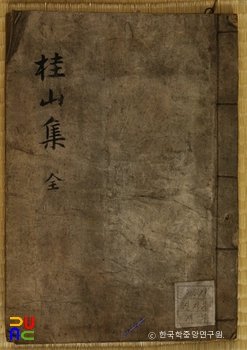 桂山集
全
PUAC
© 한국학중앙연구원.